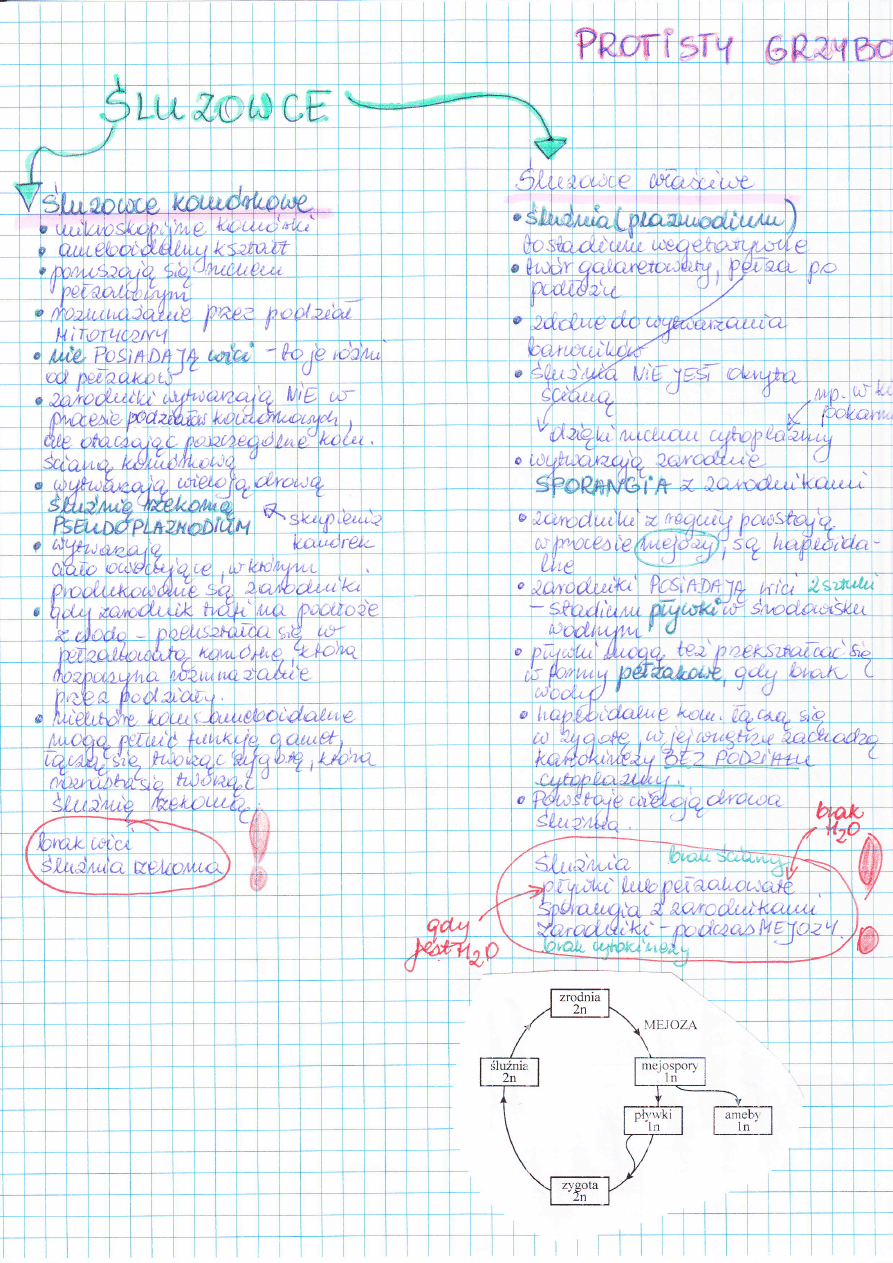 PROTISTY GRZYBO
ŚLUZOWCE
Śluzowce komórkowe
• mikroskopijne komórki
• ameboidalny kształt
• poruszają się ruchem
pełzakowym
• rozmnażanie przez podział
MITOTYCZNY
• nie POSIADAJĄ wici - to je różni
od pełzaków
• zarodniki wytwarzają NIE w
procesie podziałów komórkowych,
ale otaczając poszczególne kom.
ścianą komórkową
• wytwarzają wielojądrową
śluźnię rzekomą
PSEUDOPLAZMODIUM
skupienie
komórek
• wytwarzają
ciało owocujące, w którym
produkowane są zarodniki
• gdy zarodnik trafi na podłoże
z wodą - przekształca się w
pełzakowatą komórkę, która
rozpoczyna rozmnażanie
przez podziały.
• niektóre kom. ameboidalne
mogą pełnić funkcję gamet,
łączą się, tworząc zygotę, która
rozrasta się tworząc
śluźnię rzekomą.
brak wici
śluźnia rzekoma
!
Śluzowce właściwe
• śluźnia (plazmodium)
to stadium wegetatywne
• twór galaretowaty, pełza po
podłożu
• zdolne do wytwarzania
barwników
• śluźnia NIE JEST okryta
ścianą
np. w ki
pokarm
dzięki ruchom cytoplazmy
• wytwarzają zarodnie
SPORANGIA z zarodnikami
• zarodniki z reguły powstają
w procesie mejozy, są haploida-
lne
• zarodniki POSIADAJĄ wici 2 sztuki
- stadium pływki w środowisku
wodnym
• pływki mogą też przekształcać się
w formy pełzakowe, gdy brak
wody
• haploidalne kom. łączą się
w zygotę, w jej wnętrzu zachodzą
kariokinezy BEZ PODZIAŁU
cytoplazmy.
• Powstaje wielojądrowa
śluźnia.
brak
H2O
śluźnia brak ściany
pływki lub pełzakowate
sporangia z zarodnikami
zarodniki - podczas MEJOZY.
brak cytokinezy
!
gdy
jest H2O
zrodnia
2n
MEJOZA
śluźnia
2n
mejospory
1n
pływki
1n
ameby
1n
zygota
2n